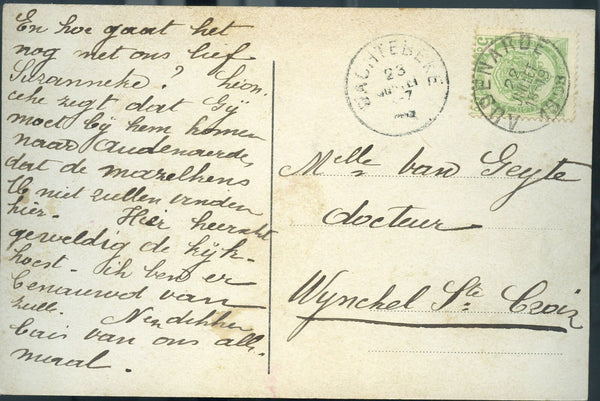 En hoe gaat het
nog met ons lief
Suzanneke? Léon-
che zegt dat Gij
moet bij hem komen
naar Audenaerde,
dat de mazelkens
U niet zullen vinden
hier. Hier heerscht
geweldig de kijk-
hoest. ik ben er
benauwd van
zulle. Nen dikken
bais van ons alle-
maal.
BACHTEBEKE
23
7
AUDENARDE
22
Melle Van Geyte
docteur
Wynckel Ste Croix